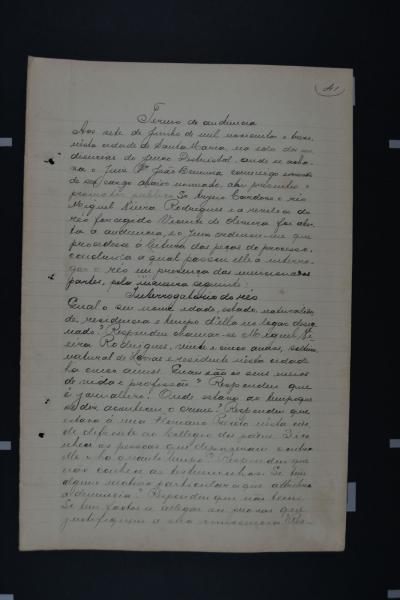 41
Termo de audiencia
Aos sete de Junho de mil novecentos e treze,
nesta cidade de Santa Maria, na sala das au-
diencias do Juizo Districtal, onde se acha-
va o Juiz João commigo escrivão
de seu cargo abaixo nomeado, ahi presentes o
promotor publico Cardoso o réo
Miguel Vieira Rodrigues e a revelia do
réo foragido Vicente de Oliveira foi aber-
ta a audiencia, e o Juiz ordenou-me que
procedesse á leitura das peças do processo,
concluida a qual passou elle a interro-
gar o réo em presença das mencionadas
partes, pela maneira seguinte:
Interrogatorio do réo
Qual o seu nome, idade, estado, naturalida-
de, residencia e tempo d'ella no lugar desig-
nado? Respondeu chamar-se Miguel Vi-
eira Rodrigues, vinte e cinco annos, solteiro,
natural de e residente nesta cidade
ha cinco annos. Quaes são os seus meios
de vida e profissão? Respondeu que
é jornaleiro. Onde estava ao tempo que
se diz aconteceu o crime? Respondeu que
estava á rua Floriano Peixoto nesta cida-
de defronte ao Collegio dos padres. Si co-
nhece as pessoas que depuzeram
e ha quanto tempo? Respondeu que
não conhece as testemunhas. Se tem
algum motivo particular a que attribua
a denuncia? Respondeu que não tem.
Se tem factos a allegar ou provas que
justifiquem a sua innocencia? Res-